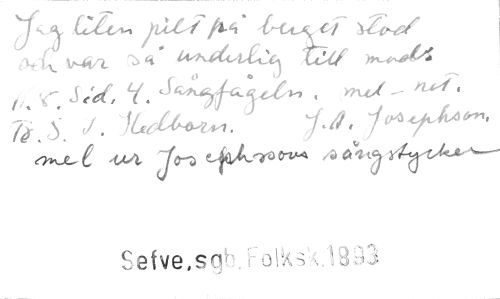 Jag liten pilt på berget stod
och var så underlig till mods
N. 8. Sid. 4. Sångfågeln. mel-not.
S. J. Hedborn. J. A. Josephson.
mel ur Josephsons sångstycken
Sefve, sgb. Folksk. 1893